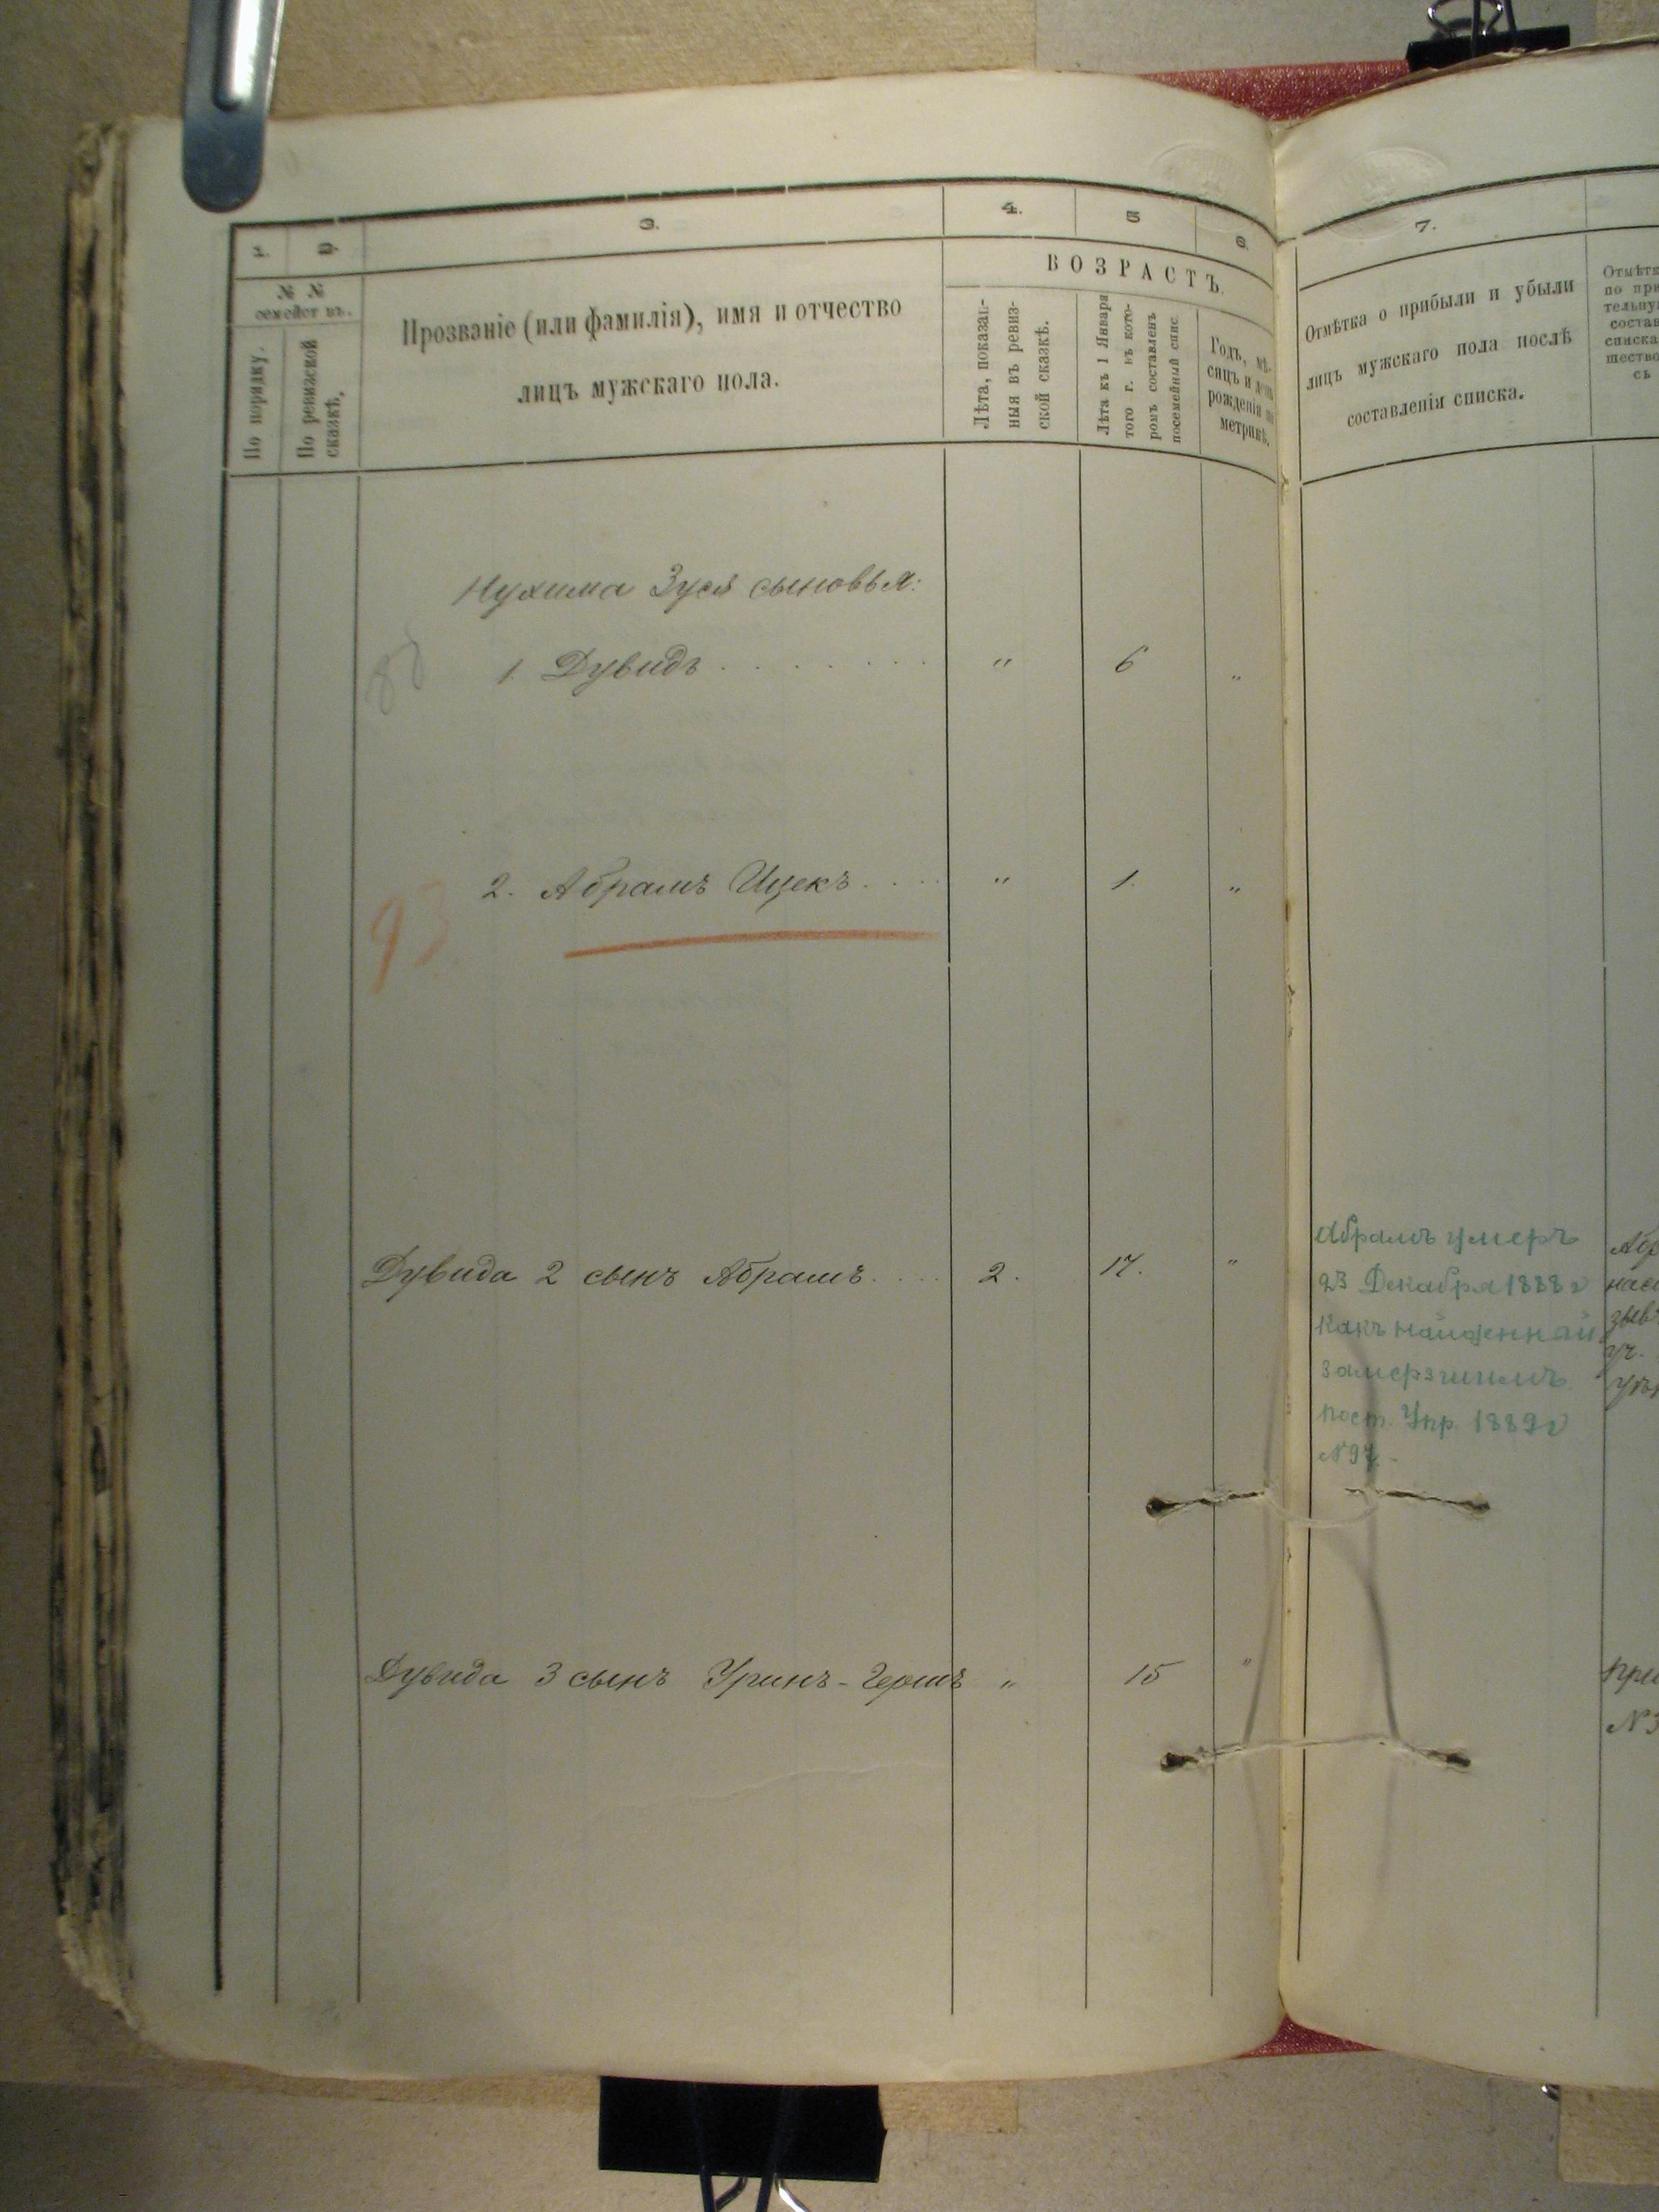 1. 2. 3. 4. 5 6.
№ №
семействъ.
По порядку.
По ревизской
сказкѣ.
Прозваніе (или фамилія), имя и отчество
лицъ мужскаго пола.
ВОЗРАСТЪ.
Лѣта, показан-
ныя въ ревиз-
ской сказкѣ.
Лѣта къ 1 Января
того г. въ кото-
ромъ составленъ
посемейный спис.
Годъ, мѣ-
сяцъ и день
рожденія по
метрикѣ.
Нухима Зуся сыновья:
1. Дувидъ . . . . . . . . " 6 "
2. Абрамъ Ицекъ . . . . " 1. "
93
Дувида 2 сынъ Абрамъ . . . . 2. 17. "
Дувида 3 сынъ Уринъ-Гершъ " 15 "
7.
Отмѣтка о прибыли и убыли
лицъ мужскаго пола послѣ
составленія списка.
Абрамъ умеръ
23 Декабря 1888 г
какъ найденный
замерзшимъ
пост. Упр. 1889 г
№ 97.-
Отмѣтк
по при
тельну
состав
списка
шество
съ
Абр
насе
зыв
уч.
при
№ 3